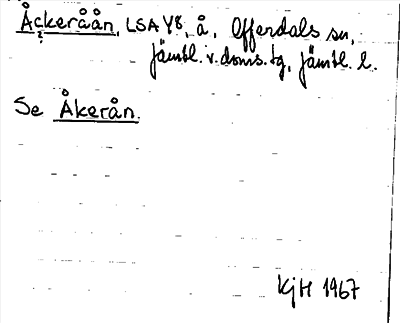 Åckeråån, LSA Y8, å, Offerdals sn,
?
Jämtl. v. doms. tg, Jämtl. l.
Se Åkerån.
KjH 1967